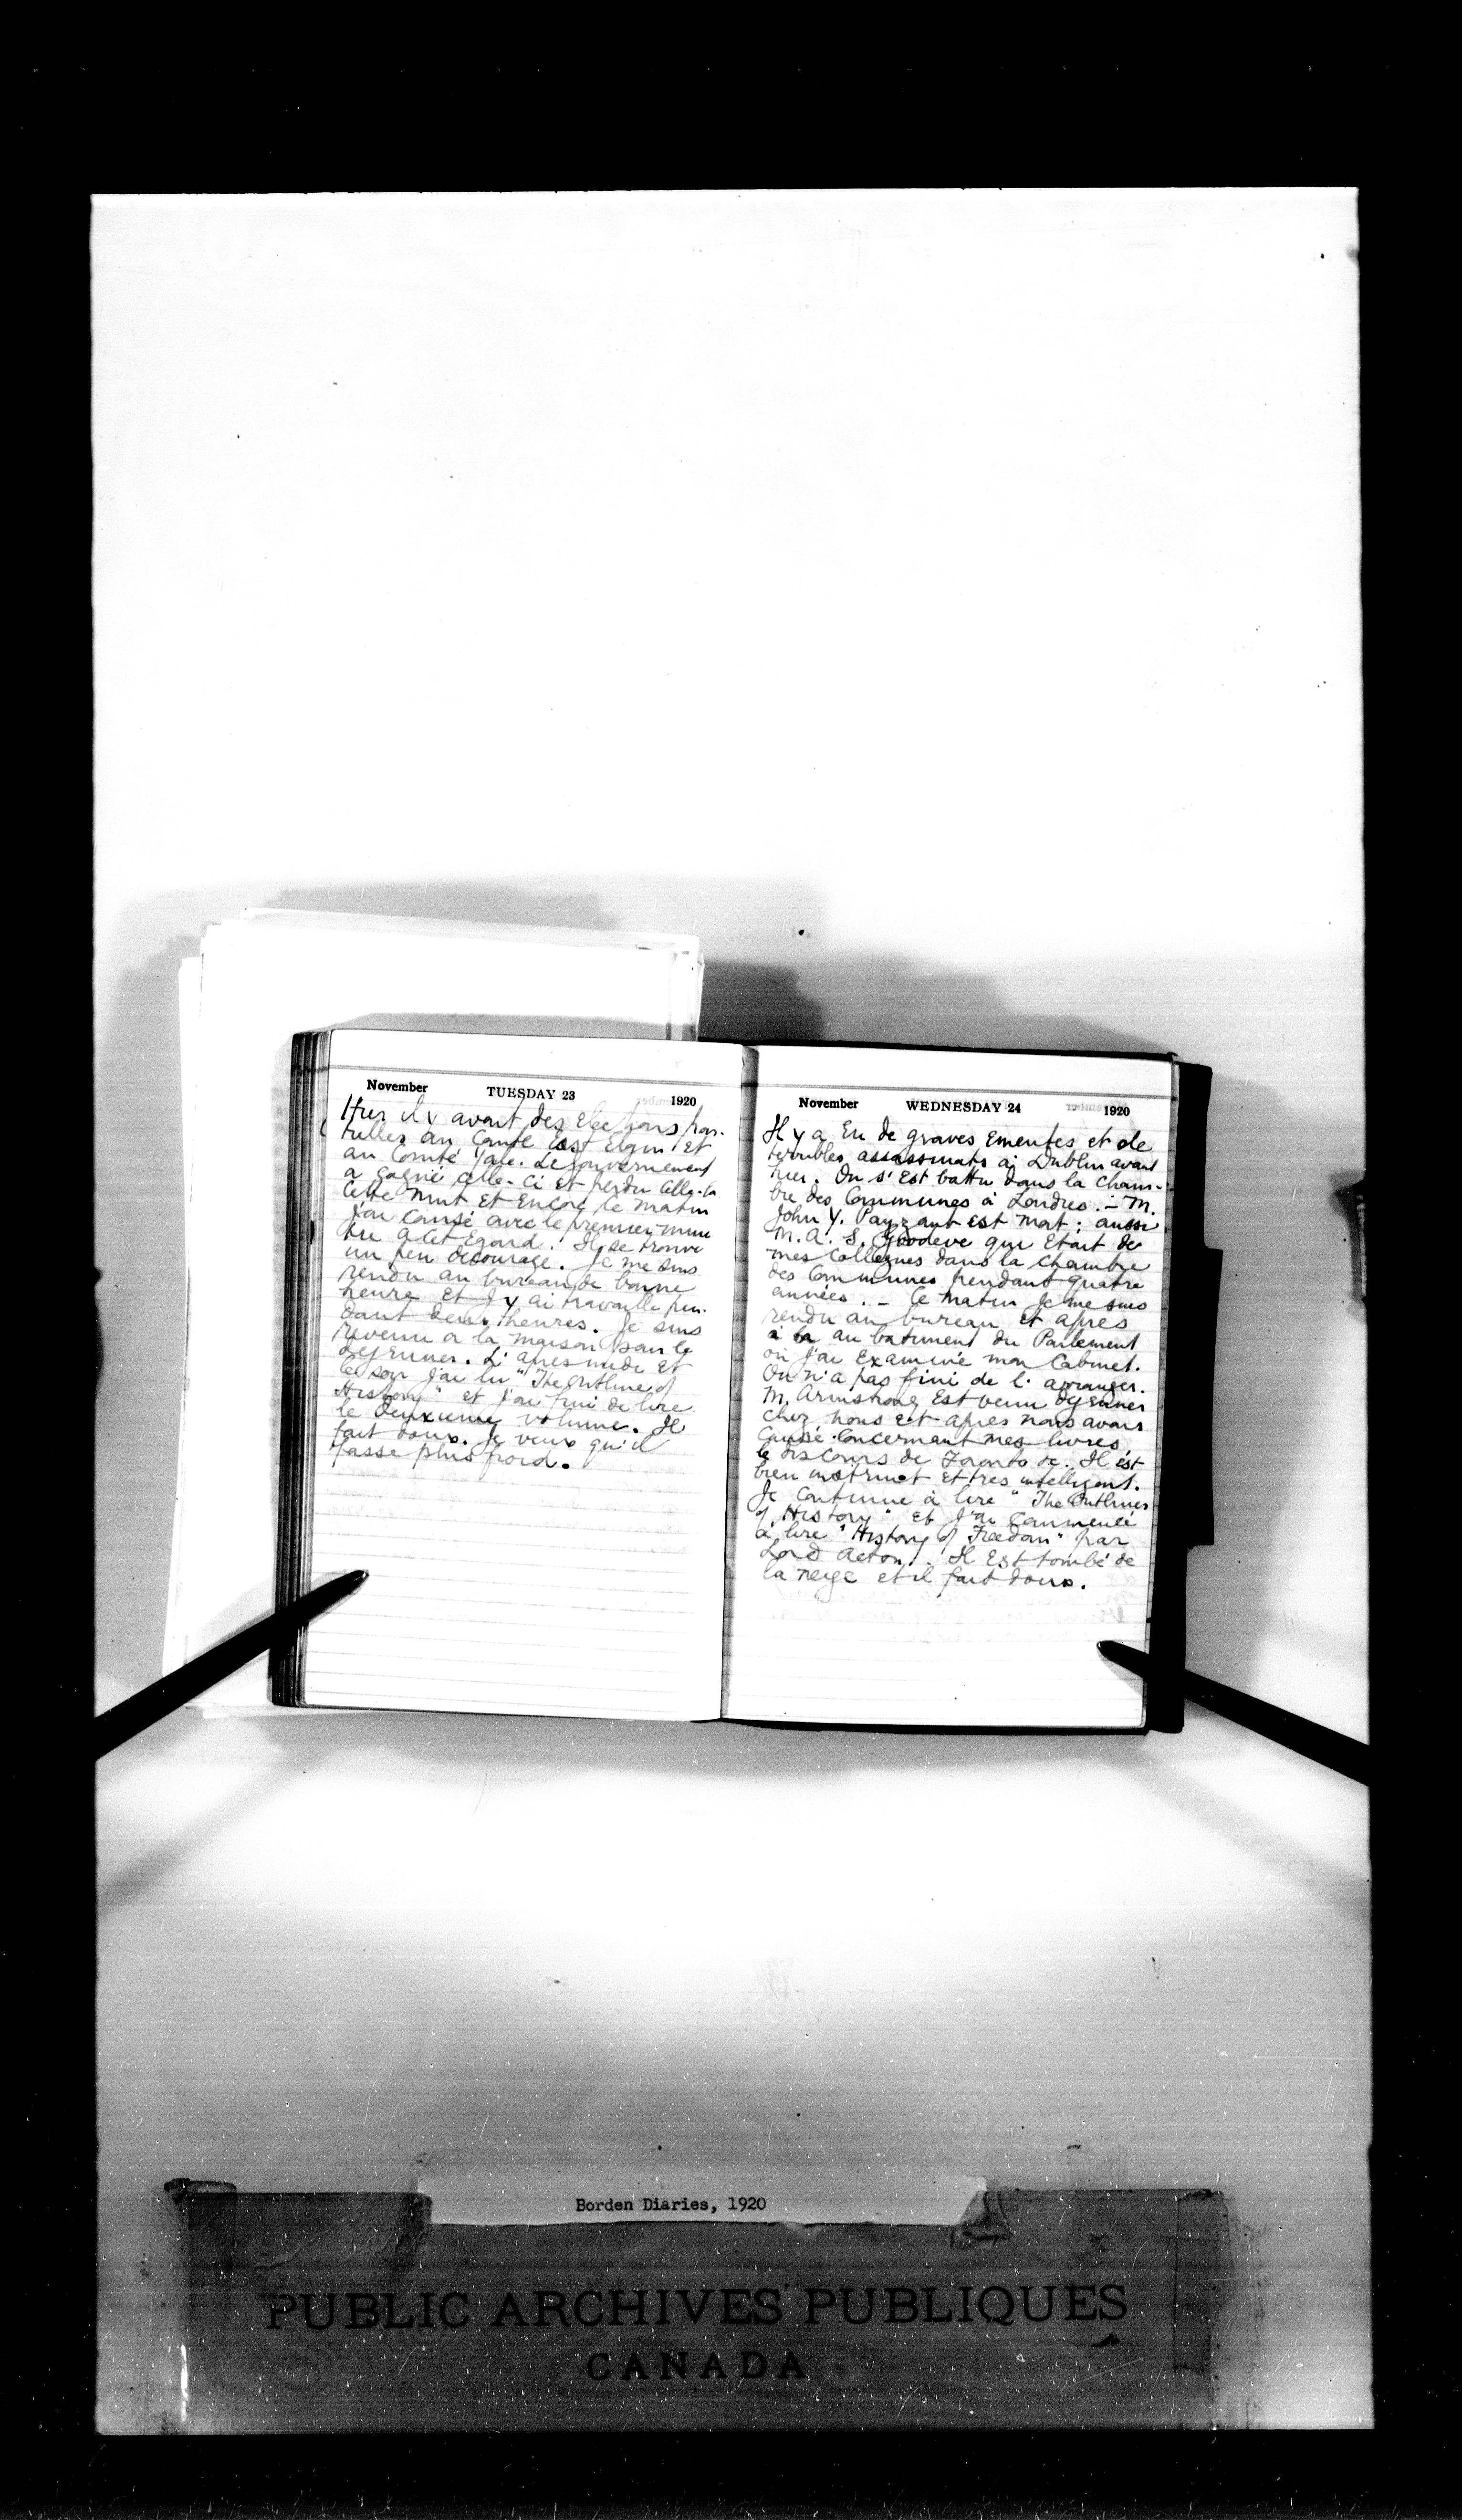 November TUESDAY 23 1920
Hier il y avait des elections par-
tielles au Comté East Elgin et
au Comité Yale. Le gouvernement
a gagné celle-ci et perdu celle-la
Cette nuit et encore ce matin
j'ai causé avec le premier minis
tre a cet egard. Il se trouve
un peu decourage. Je me suis
rendu au bureau de bonne
heure et j'y ai travaillé pen-
dant deux heures. Je suis
revenu a la maison pour le
dejeuner. L'apres midi et
le soir j'ai lu "The Outline of
History" et j'ai fini de lire
le deuxieme volume. Il
fait doux. Je veux qu'il
fasse plus froid.
November WEDNESDAY 24 1920
Il y a Eu de graves Emeutes et de
terribles assassinats à Dublin avant
hier. On s'est battu dans la Cham-
bre des Communes à Londres. - M.
John Y. Payzant est mort; aussi
M. A. S. Goodeve qui Etait de
mes Collegues dans la Chambre
des Communes pendant quatre
années. - Ce matin Je me suis
rendu au bureau et apres
à la au batiment du Parlement
où j'ai Examiné mon Cabinet.
On n'a pas fini de l'arranger.
M. Armstrong Est venu dejeuner
chez nous et apres nous avons
Causé Concernant mes livres,
le discours de Toronto &c. Il est
bien instruit et tres intelligent.
Je Continue à lire "The Outlines
of History" et j'ai Commencé
à lire "History of Freedom" par
Lord Acton. Il Est tombé de
la neige et il fait doux.
Borden Diaries, 1920
PUBLIC ARCHIVES PUBLIQUES
CANADA